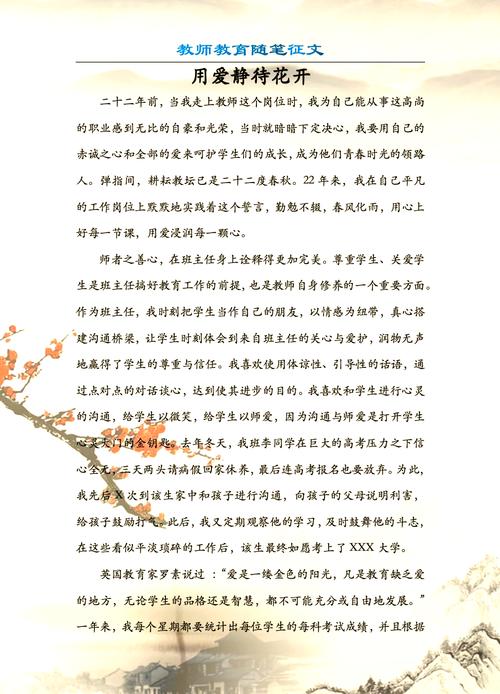 教师教育随笔征文
用爱静待花开
二十二年前，当我走上教师这个岗位时，我为自己能从事这高尚
的职业感到无比的自豪和光荣，当时就暗暗下定决心，我要用自己的
赤诚之心和全部的爱来呵护学生们的成长，成为他们青春时光的领路
人。弹指间，耕耘教坛已是二十二度春秋。22 年来，我在自己平凡
的工作岗位上默默地实践着这个誓言，勤勉不辍，春风化雨，用心上
好每一节课，用爱浸润每一颗心。
师者之善心，在班主任身上诠释得更加完美。尊重学生、关爱学
生是班主任搞好教育工作的前提，也是教师自身修养的一个重要方面。
作为班主任，我时刻把学生当作自己的朋友，以情感为纽带，真心搭
建沟通桥梁，让学生时刻体会到来自班主任的关心与爱护，润物无声
地赢得了学生的尊重与信任。我喜欢使用体谅性、引导性的话语，通
过点对点的对话谈心，达到使其进步的目的。我喜欢和学生进行心灵
的沟通，给学生以微笑，给学生以师爱，因为沟通与师爱是打开学生
心灵天门的金钥匙。去年冬天，我班李同学在巨大的高考压力之下信
心全无，三天两头请病假回家休养，最后连高考报名也要放弃。为此，
我先后 X 次到该生家中和孩子进行沟通，向孩子的父母说明利害，
给孩子鼓励打气。此后，我又定期观察他的学习，及时鼓舞他的斗志，
在这些看似平淡琐碎的工作后，该生最终如愿考上了 XXX 大学。
英国教育家罗素说过：“爱是一缕金色的阳光，凡是教育缺乏爱
的地方，无论学生的品格还是智慧，都不可能充分或自由地发展。”
一年来，我每个星期都要统计出每位学生的每科考试成绩，并且根据